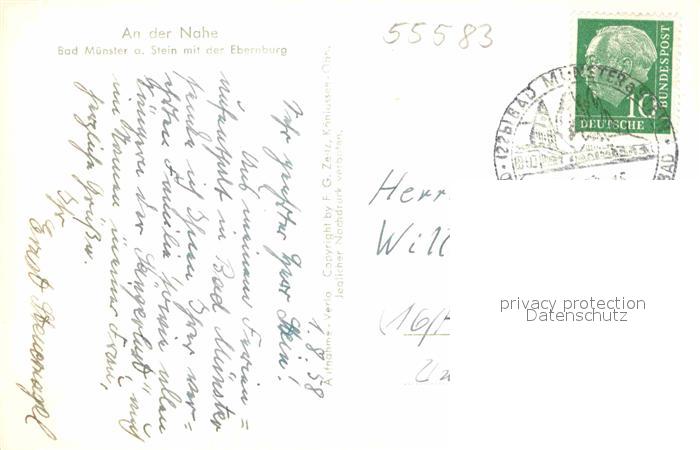 An der Nahe
Bad Münster a. Stein mit der Ebernburg
55583
1.8.58
Sehr geehrter Herr Stein!
Aus meinem Ferien=
aufenthalt in Bad Münster
sende ich Ihnen, Ihrer wer=
ten Familie sowie allen
Sängern der „Sängerlust" auch
im Namen meiner Frau,
herzliche Grüße.
Ihr
Ernst
Aufnahme-Verlag Copyright by F. G. Zeitz, Königssee-Obb.
Jeglicher Nachdruck verboten.
Herr
Will
(16/
DEUTSCHE
BUNDESPOST
10
(22b) BAD MÜNSTER a. STEIN
privacy protection
Datenschutz